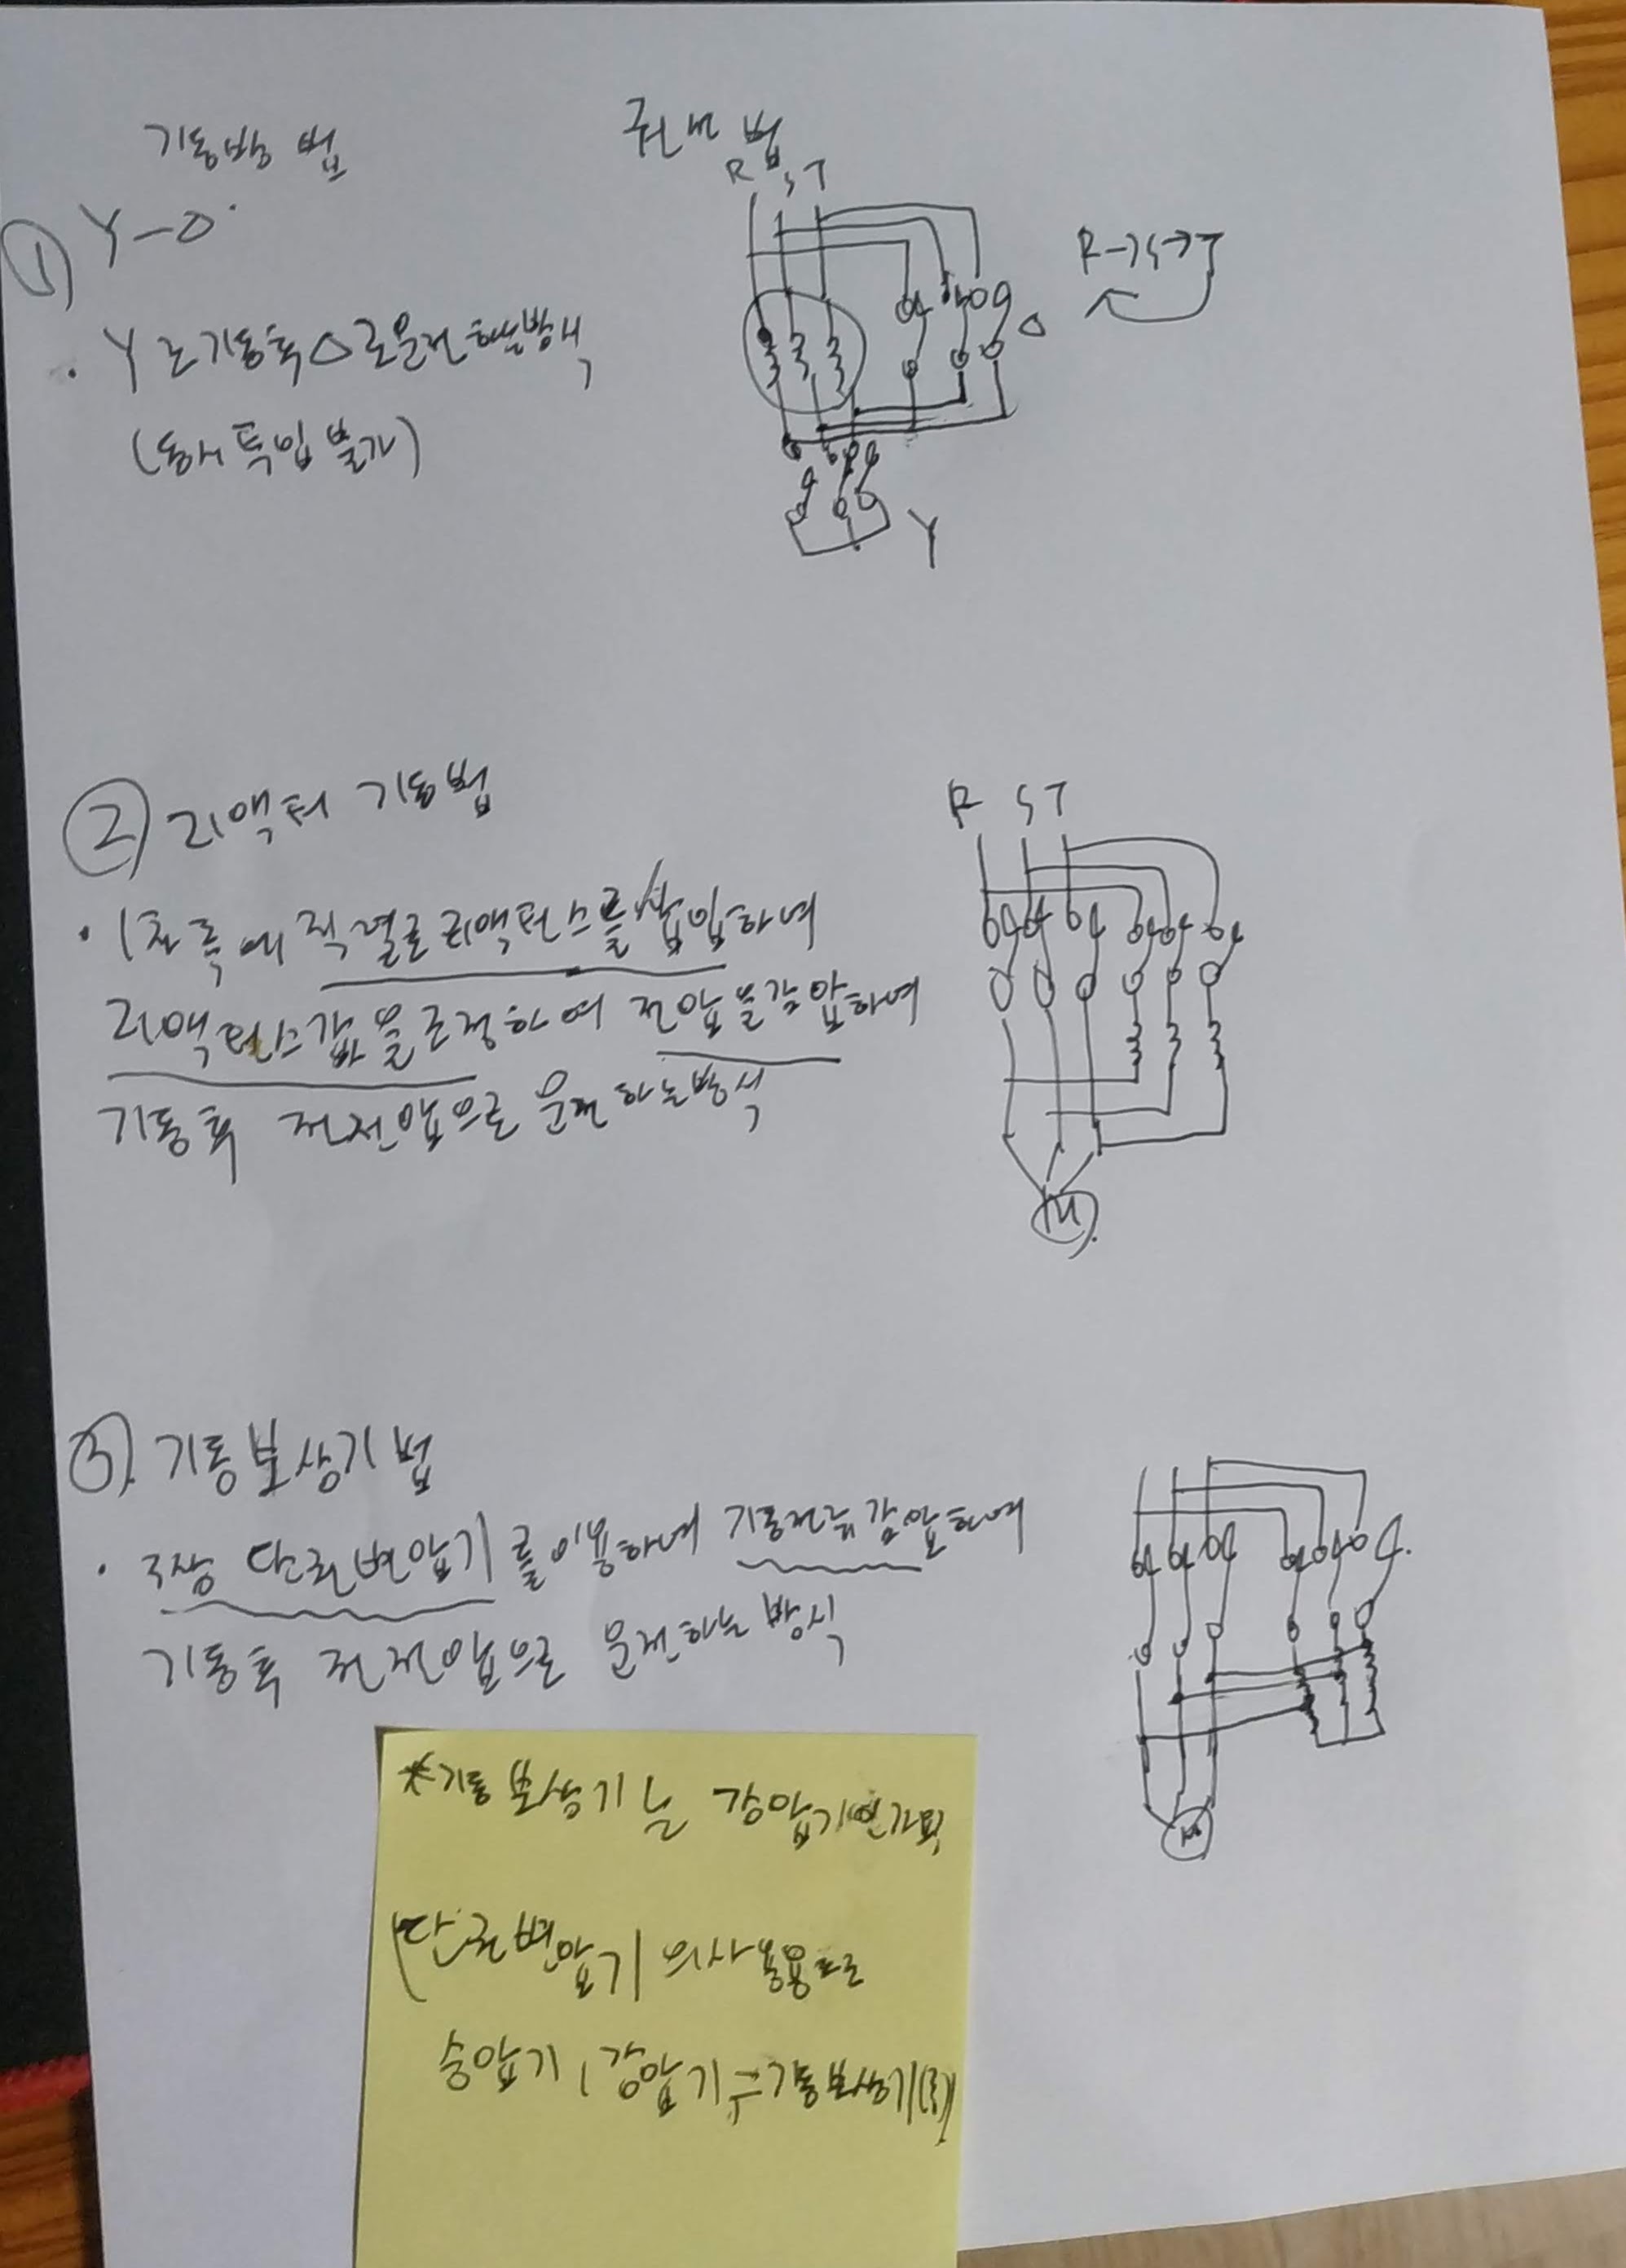 기동방법
권선법
R S T
① Y-Δ
R→S→T
· Y로 기동후 Δ로 운전하는방식
Δ
(동시투입불가)
Y
② 리액터 기동법
R S T
· 1차측에 직렬로 리액턴스를 삽입하여
리액턴스값을 조정하여 전압을감압하여
기동후 전전압으로 운전하는방식
M
③. 기동보상기법
· 3상 단권변압기를이용하여 기동전류감압하여
기동후 전전압으로 운전하는방식
M
*기동보상기는 강압기
(단권변압기의사용용도로
승압기, 강압기 기동보상기